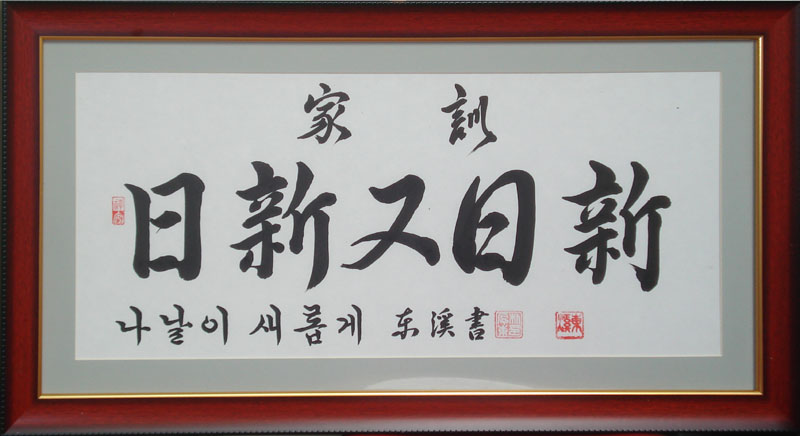 家訓
日新又日新
나날이 새롭게 东溪書